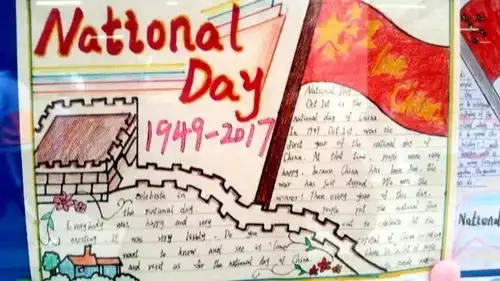 National
Day
1949-2017
love
China
National Day
Oct 1st is the
national day of China
In 1949 Oct 1st was the
first year of the national day of
China. At that time, people were very
happy, because China has been free, the
war has just stopped. We were the
winner! Then every year of this day,
people put the national flag
out to celebrate. At the
capital of China
celebrate in
the national day
Everybody was happy and very
exciting. It was very lovely. Do you
want to know and see it? Come
and visit us for the national day of China.
National